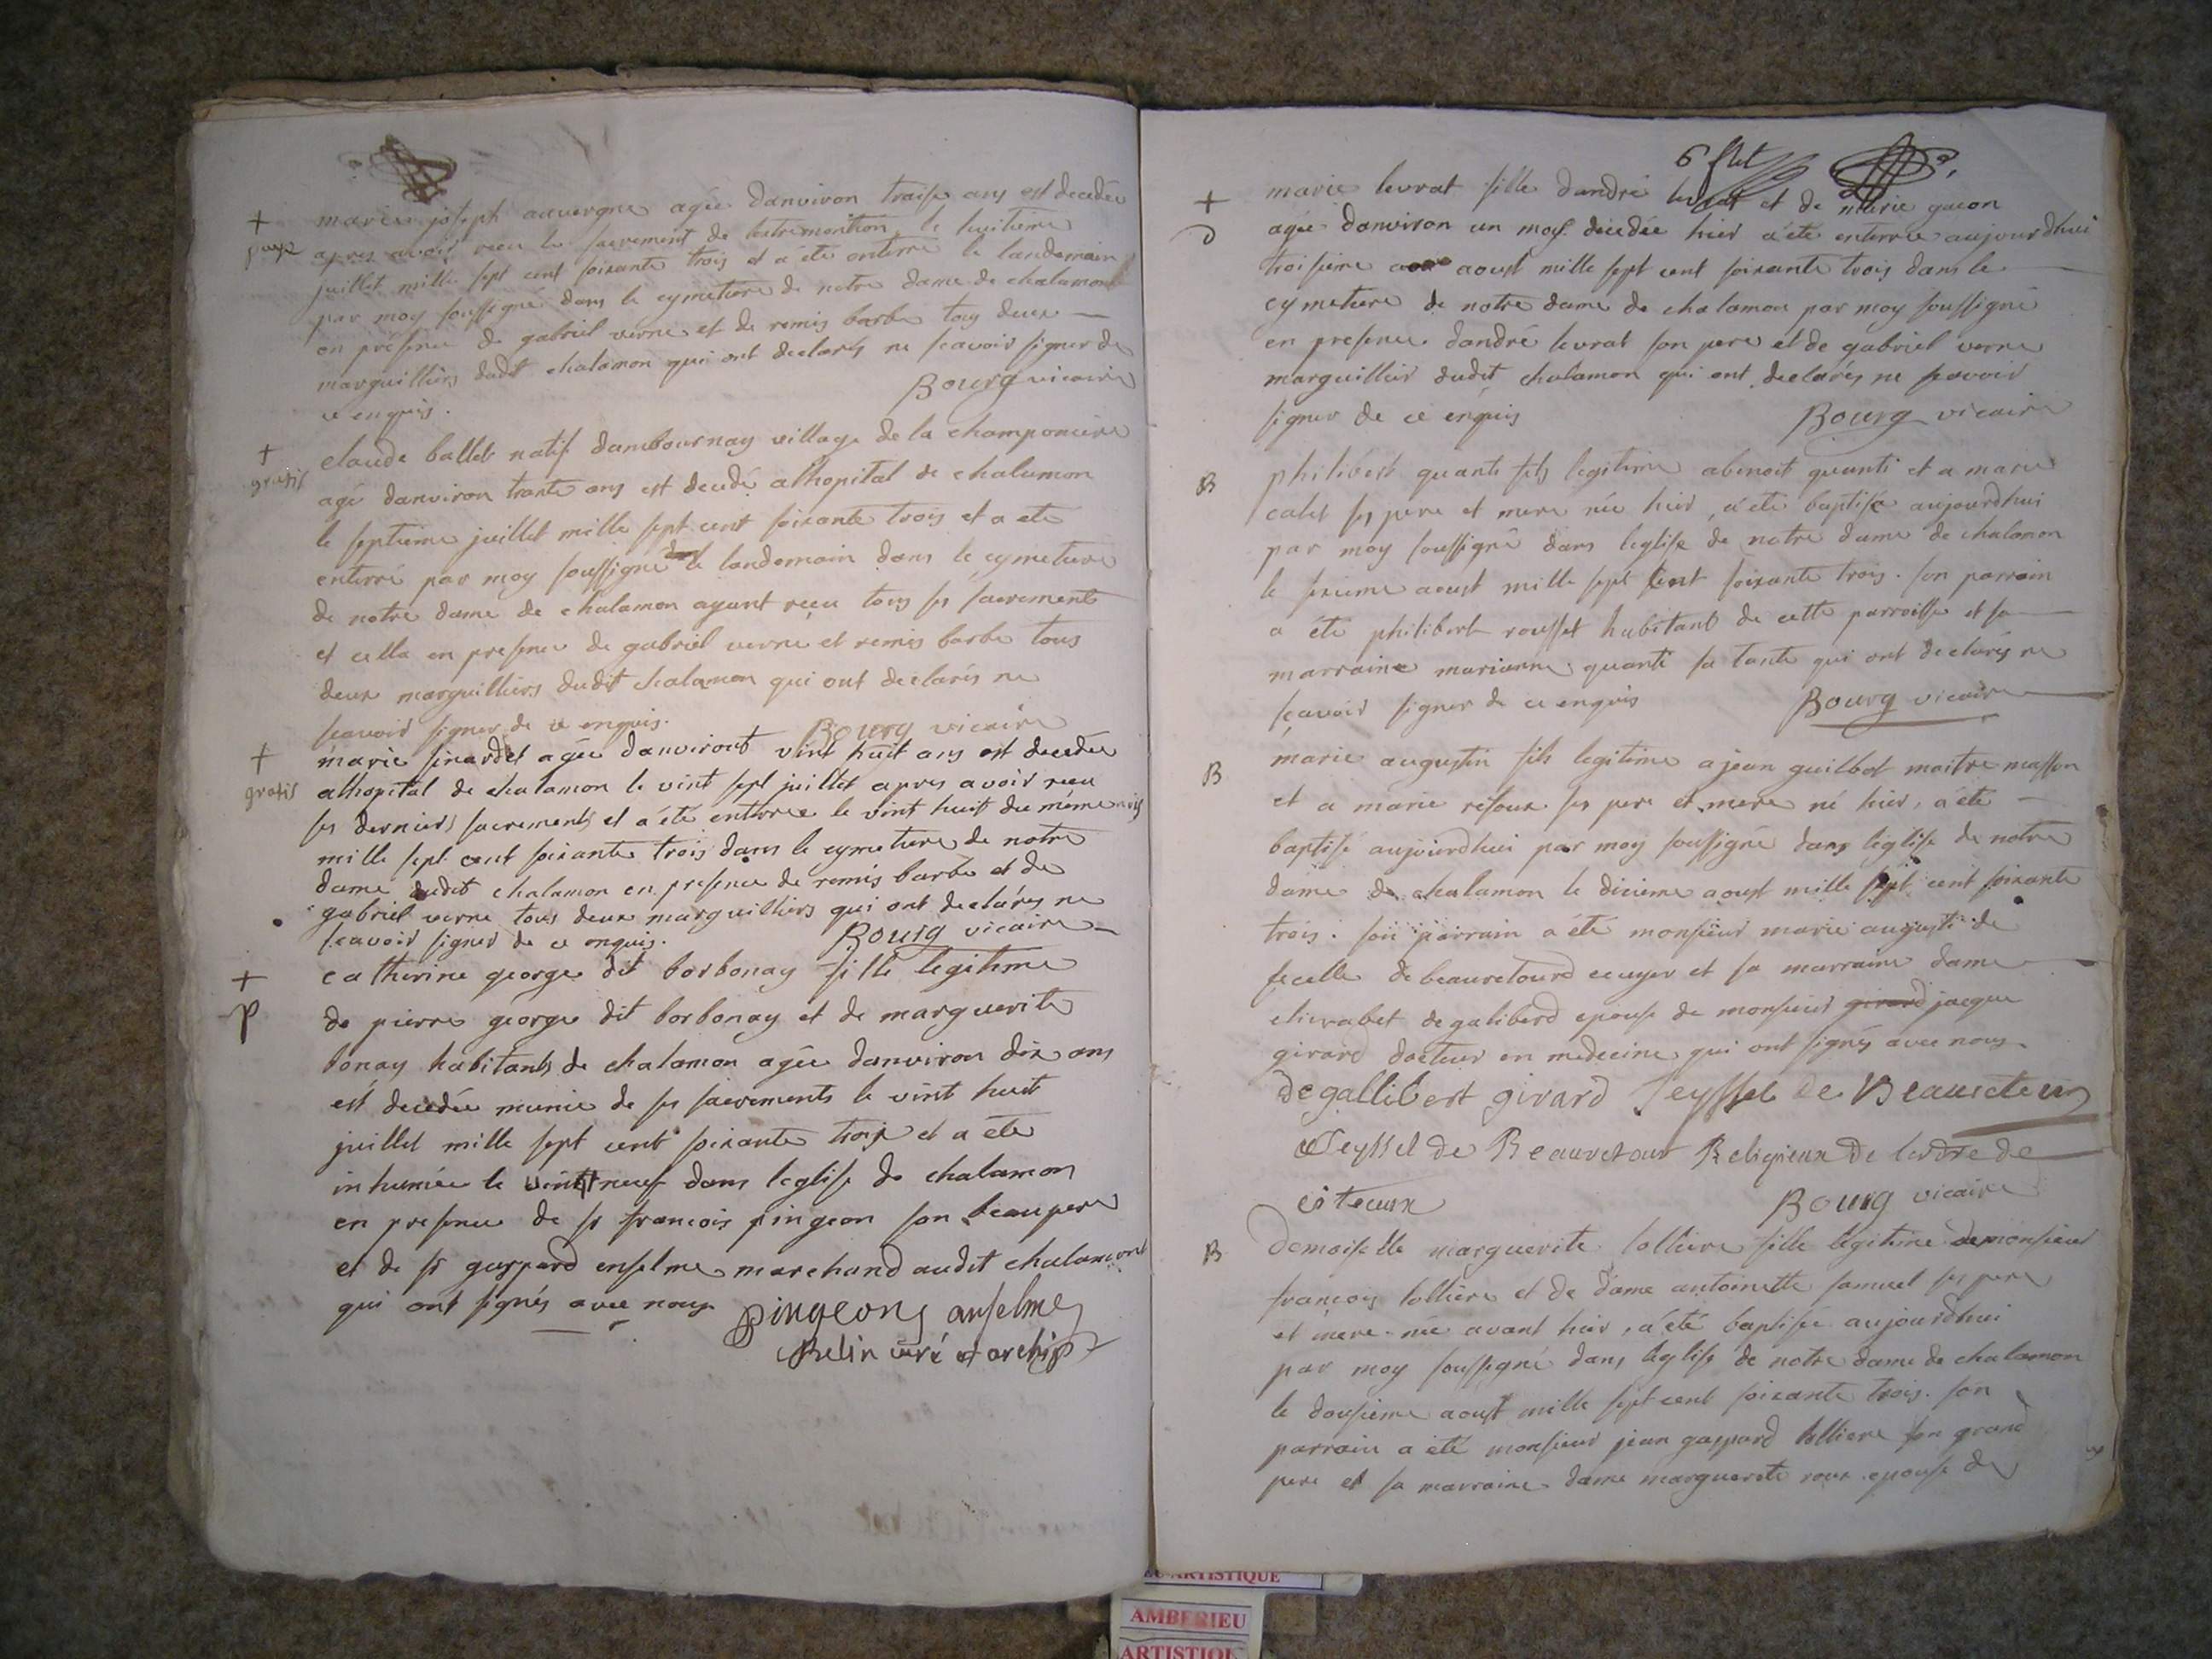 + marie joseph auvergne agée danviron traise ans est decedée
paye apres avoir recu le sacrement de lextremontion le huitieme
juillet mille sept cent soixante trois et a été enterré le landemain
par moy soussigné dans le cymetiere de notre dame de chalamont
en présence de gabriel verne et de remis barbe tous deux
marguilliers dudit chalamon qui ont declarés ne scavoir signer de
ce enquis. Bourg vicaire
+ claude ballet natif dambournay village de la champoniere
gratis agé danviron trante ans est decedé alhopital de chalamon
le septieme juillet mille sept cent soixante trois et a ete
enterré par moy soussigné le landemain dans le cymetiere
de notre dame de chalamon ayant reçu tous ses sacrements
et cella en presence de gabriel verne et remis barbe tous
deux marguilliers dudit chalamon qui ont declarés ne
scavoir signer de ce enquis. Bourg vicaire
+ marie sinardet agée danviront vint huit ans est decedée
gratis alhopital de chalamon le vint sept juillet apres avoir recu
ses derniers sacrements et a été enterrée le vint huit du méme mois
mille sept cent soixante trois dans le cymetiere de notre
dame dudit chalamon en presence de remis barbe et de
gabriel verne tous deux marguilliers qui ont declarés ne
scavoir signer de ce enquis. Bourg vicaire
+ catherine george dit borbonay fille legitime
p de pierre george dit borbonay et de marguerite
bonay habitants de chalamon agée danviron dix ans
est decedée munie de ses sacrements le vint huit
juillet mille sept cent soixante trois et a été
inhumée le vint neuf dans leglise de chalamon
en presence de sr francois pingeon son beaupere
et de sr gaspard enselme marchand audit chalamont
qui ont signés avec nous pingeon anselme
Belin curé et archip
6
+ marie levrat fille dandré levrat et de marie gueon
agée danviron un moys decedée hier a été enterrée aujourdhui
troisieme aoust mille sept cent soixante trois dans le
cymetiere de notre dame de chalamon par moy soussigné
en presence dandré levrat son pere et de gabriel verne
marguillier dudit chalamon qui ont declarés ne scavoir
signer de ce enquis Bourg vicaire
B philibert quanti fils legitime abenoit quanti et a marie
calet ses pere et mere née hier, a été baptisé aujourdhui
par moy soussigné dans leglise de notre dame de chalamon
le sixieme aoust mille sept cent soixante trois. son parrain
a été philibert rousset habitant de cette parroisse et sa
marraine marianne quanti sa tante qui ont declarés ne
sçavoir signer de ce enquis Bourg vicaire
B marie augustin fils legitime a jean guilbot maitre masson
et a marie risoux ses pere et mere né hier, a été
baptisé aujourdhui par moy soussigné dans leglise de notre
dame de chalamon le dixieme aoust mille sept cent soixante
trois. son parrain a été monsieur marie augusti de
secelle de beauretourd ecuyer et sa marraine dame
elizabet degaliberd epouse de monsieur girard jacque
girard docteur en medecine qui ont signés avec nous
degallibert girard Seyssel de Beauretour
Seyssel de Beauretour Religieux de lordre de
citeaux Bourg vicaire
B Demoiselle marguerite lolliere fille legitime de monsieur
françois lolliere et de dame antoinette samuel ses pere
et mere née avant hier, a été baptisée aujourdhui
par moy soussigné dans leglise de notre dame de chalamon
le dousieme aoust mille sept cent soixante trois. son
parrain a été monsieur jean gaspard lolliere son grand
pere et sa marraine dame marguerite roux epouse de
ARTISTIQUE
AMBERIEU